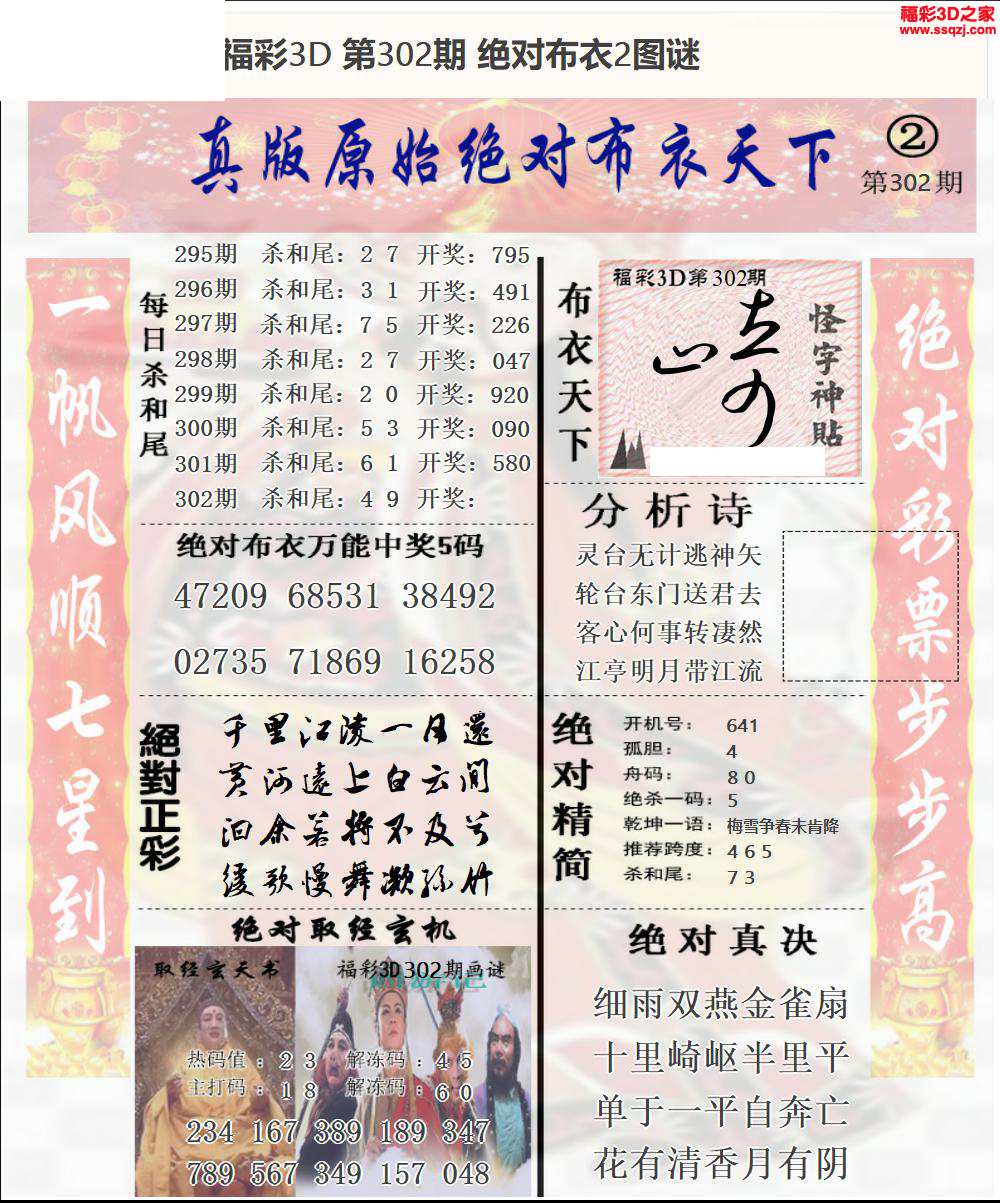 福彩3D之家
www.ssqzj.com
福彩3D 第302期 绝对布衣2图谜
真版原始绝对布衣天下
②
第302期
一帆风顺七星到
每日杀和尾
295期 杀和尾：2 7 开奖：795
296期 杀和尾：3 1 开奖：491
297期 杀和尾：7 5 开奖：226
298期 杀和尾：2 7 开奖：047
299期 杀和尾：2 0 开奖：920
300期 杀和尾：5 3 开奖：090
301期 杀和尾：6 1 开奖：580
302期 杀和尾：4 9 开奖：
绝对布衣万能中奖5码
47209 68531 38492
02735 71869 16258
絕對正彩
千里江陵一日還
黄河遠上白云间
汩余若将不及兮
缓歌慢舞凝丝竹
绝对取经玄机
取经玄天书
福彩3D302期画谜
热码值：2 3 解冻码：4 5
主打码：1 8 解冻码：6 0
234 167 389 189 347
789 567 349 157 048
布衣天下
福彩3D第302期
怪字神貼
分析诗
灵台无计逃神矢
轮台东门送君去
客心何事转凄然
江亭明月带江流
绝对精简
开机号：641
孤胆：4
舟码：8 0
绝杀一码：5
乾坤一语：梅雪争春未肯降
推荐跨度：4 6 5
杀和尾：7 3
绝对真决
细雨双燕金雀扇
十里崎岖半里平
单于一平自奔亡
花有清香月有阴
绝对彩票步步高